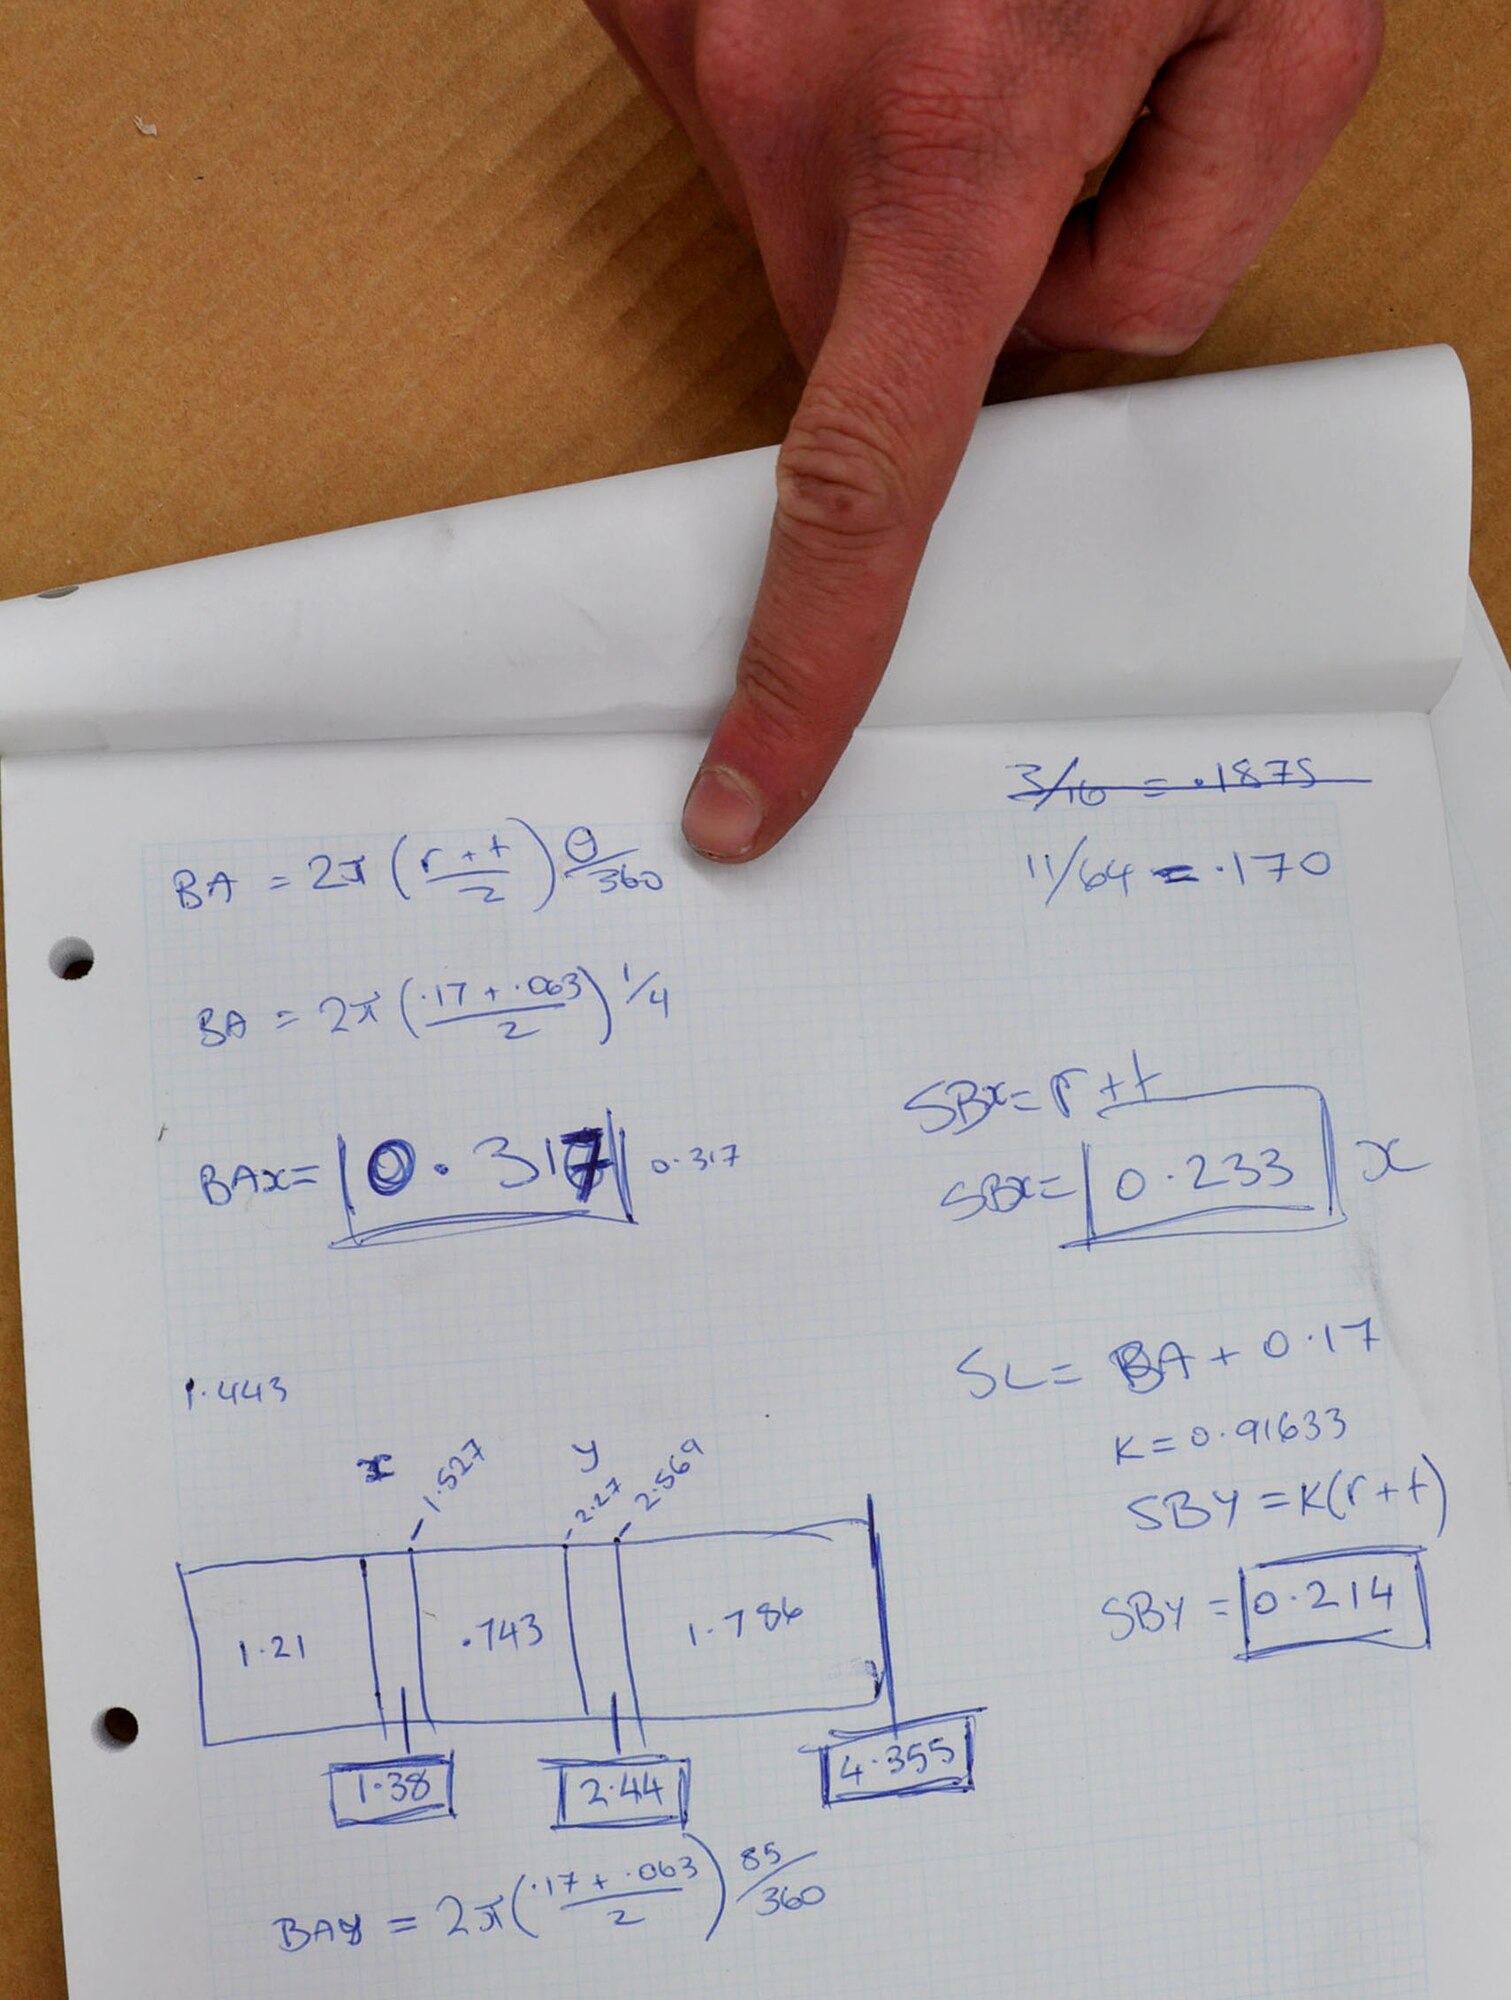 3/16 = .1875
11/64 = .170
BA = 2π (r + t / 2) θ/360
BA = 2π (.17 + .063 / 2) 1/4
BAx = 0.317 0.317
SBx = r + t
SBx = 0.233 x
SL = BA + 0.17
K = 0.91633
SBY = K(r + t)
SBY = 0.214
1.443
x 1.527 y 2.27 2.569
1.21 .743 1.786
1.38 2.44 4.355
BAy = 2π (.17 + .063 / 2) 85/360